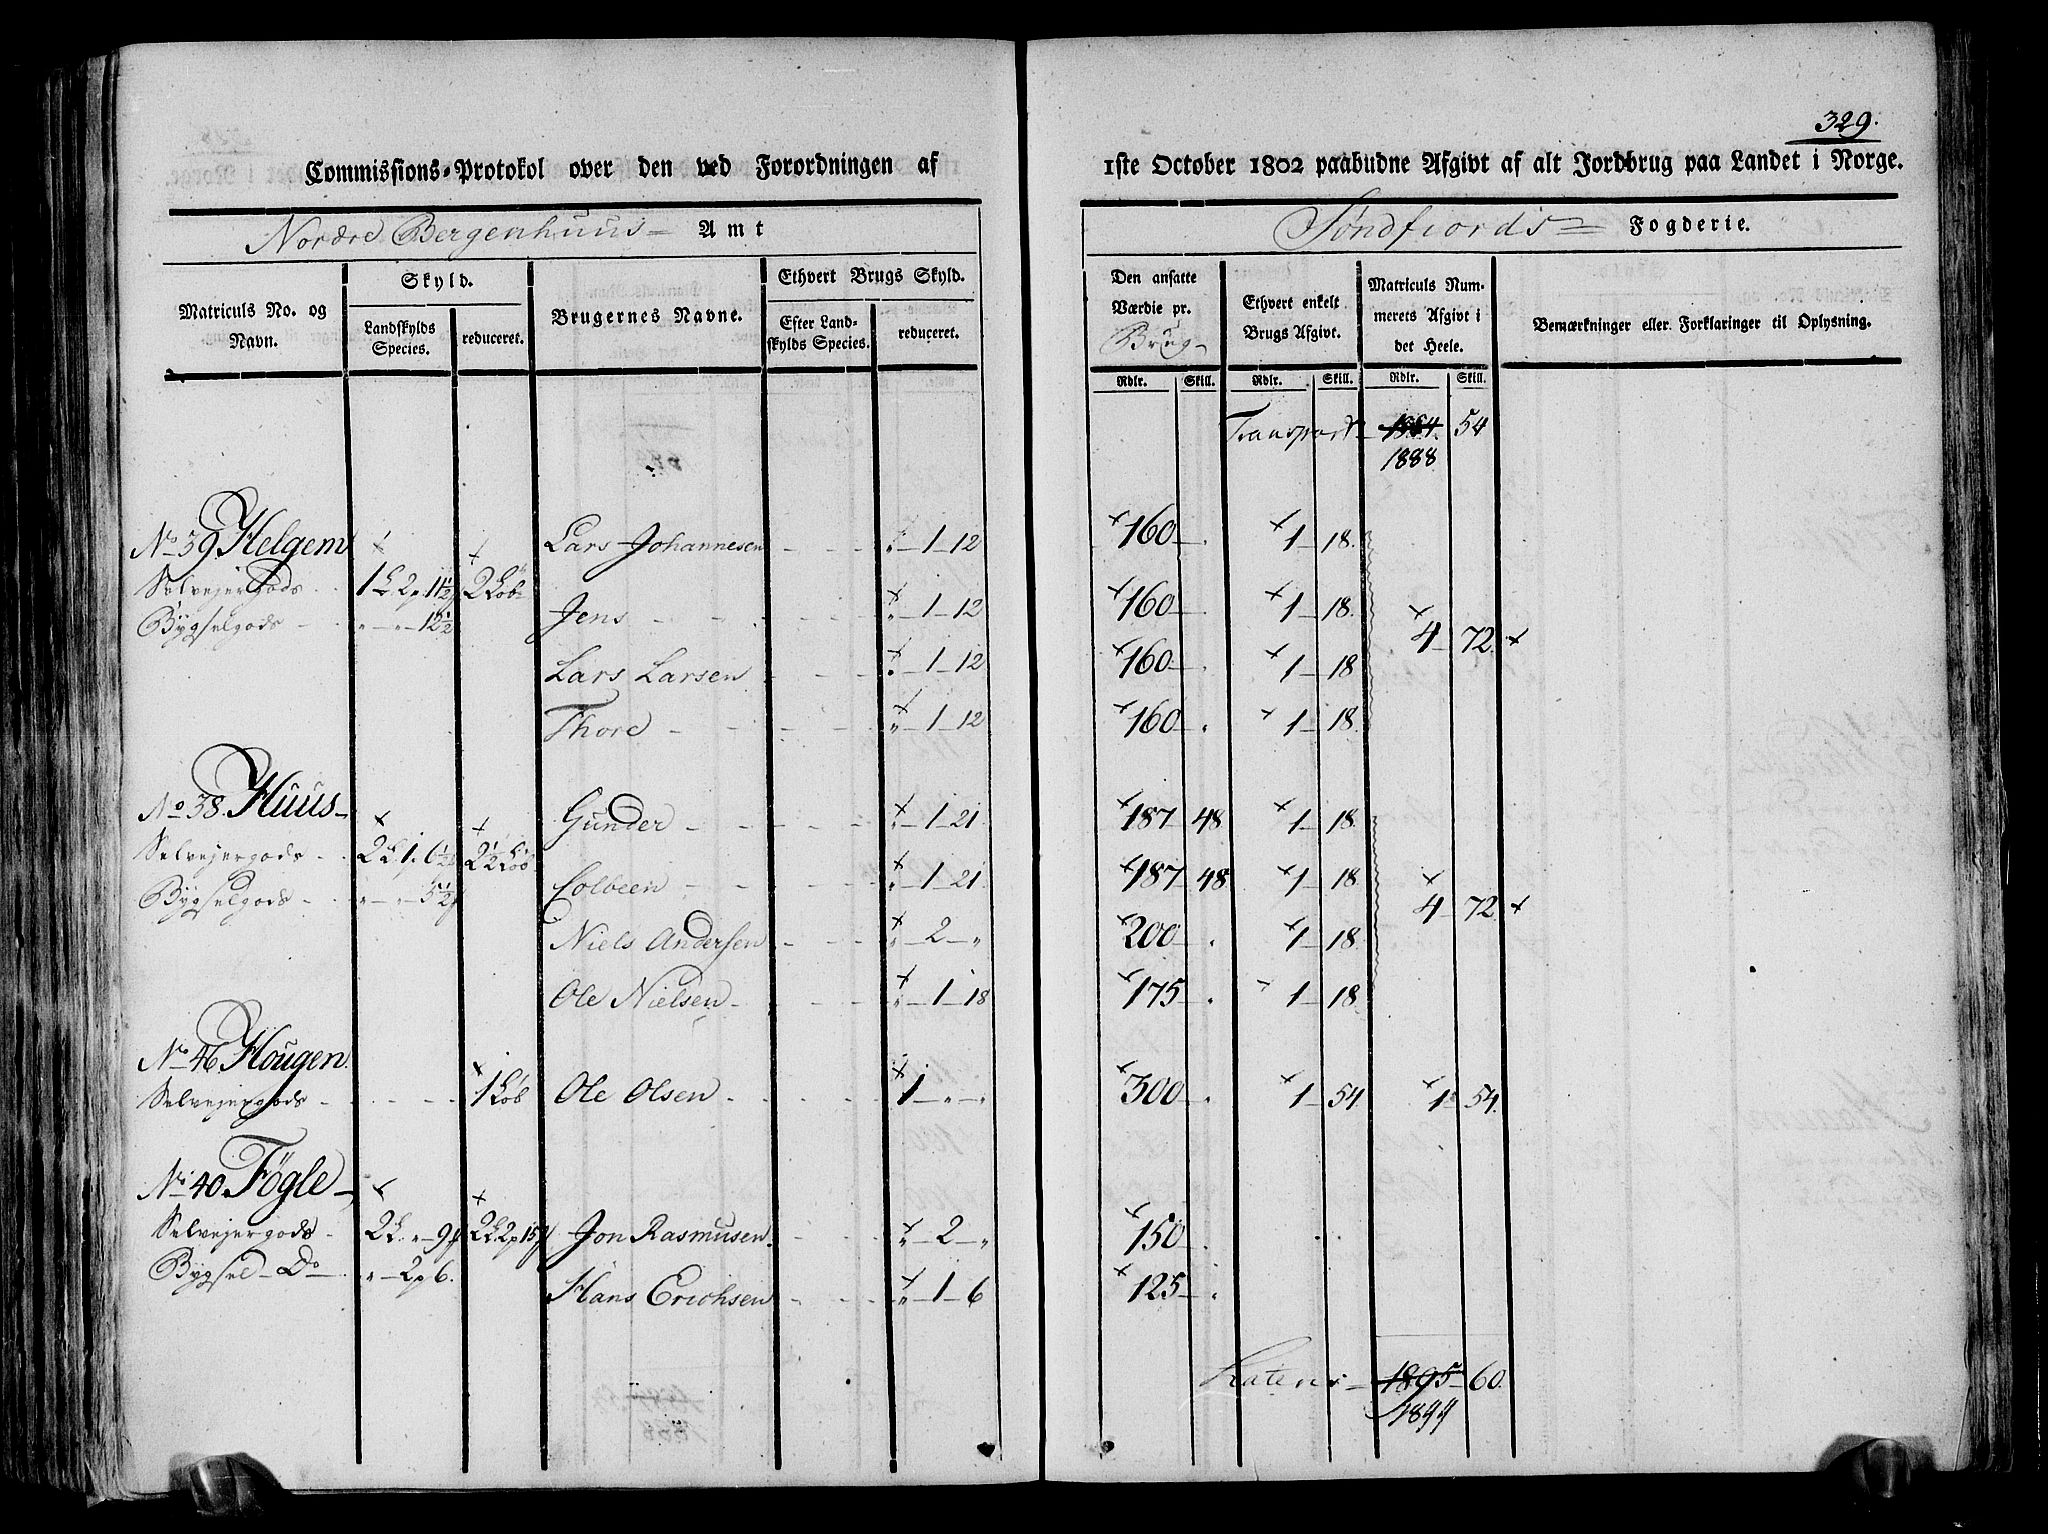 329.
Commissions-Protokol over den ved Forordningen af 1ste October 1802 paabudne Afgivt af alt Jordbrug paa Landet i Norge.
Nordre Bergenhuus Amt
Søndfiords Fogderie.
Matriculs No. og Navn.
Skyld.
Landskylds Species.
reduceret.
Brugernes Navne.
Ethvert Brugs Skyld.
Efter Landskylds Species.
reduceret.
Den ansatte Værdie pr. Brug
Ethvert enkelt Brugs Afgivt.
Matriculs Nummerets Afgivt i det Heele.
Bemærkninger eller Forklaringer til Oplysning.
Rdlr. Skill. Rdlr. Skill. Rdlr. Skill.
Transport 54
1888
No 39 Helgem Lars Johannesen „ 1 12 160 1 18.
Selvejergods 1 L 2 p 11½ 2 Løb
Bÿgselgods „ „ 12½ Jens „ 1 12 160 1 18. 4 72
Lars Larsen 1 12 160 1 18
Thore „ 1 12 160 1 18
No 38. Huus Gunder „ 1 21 187 48 1 18
Selvejergods 2 L 1 „ 6½ 2½ Løb
Bÿgselgods „ „ 5½ Colbeen „ 1 21 187 48 1 18 4 72
Niels Andersen „ 2 „ 200 1 18
Ole Nielsen „ 1 18 175 1 18
No 46 Hougen
Selvejergods 1 Løb Ole Olsen 1 „ „ 300 1 54 1 54
No 40. Føgle
Selvejergods 2 L „ 9 2 L 2 p 15 Jon Rasmusen. „ 2 „ 150
Bÿgsel Do „ 2 p 6. Hans Erichsen „ 1 6 125
Lateris 1895 60.
1899